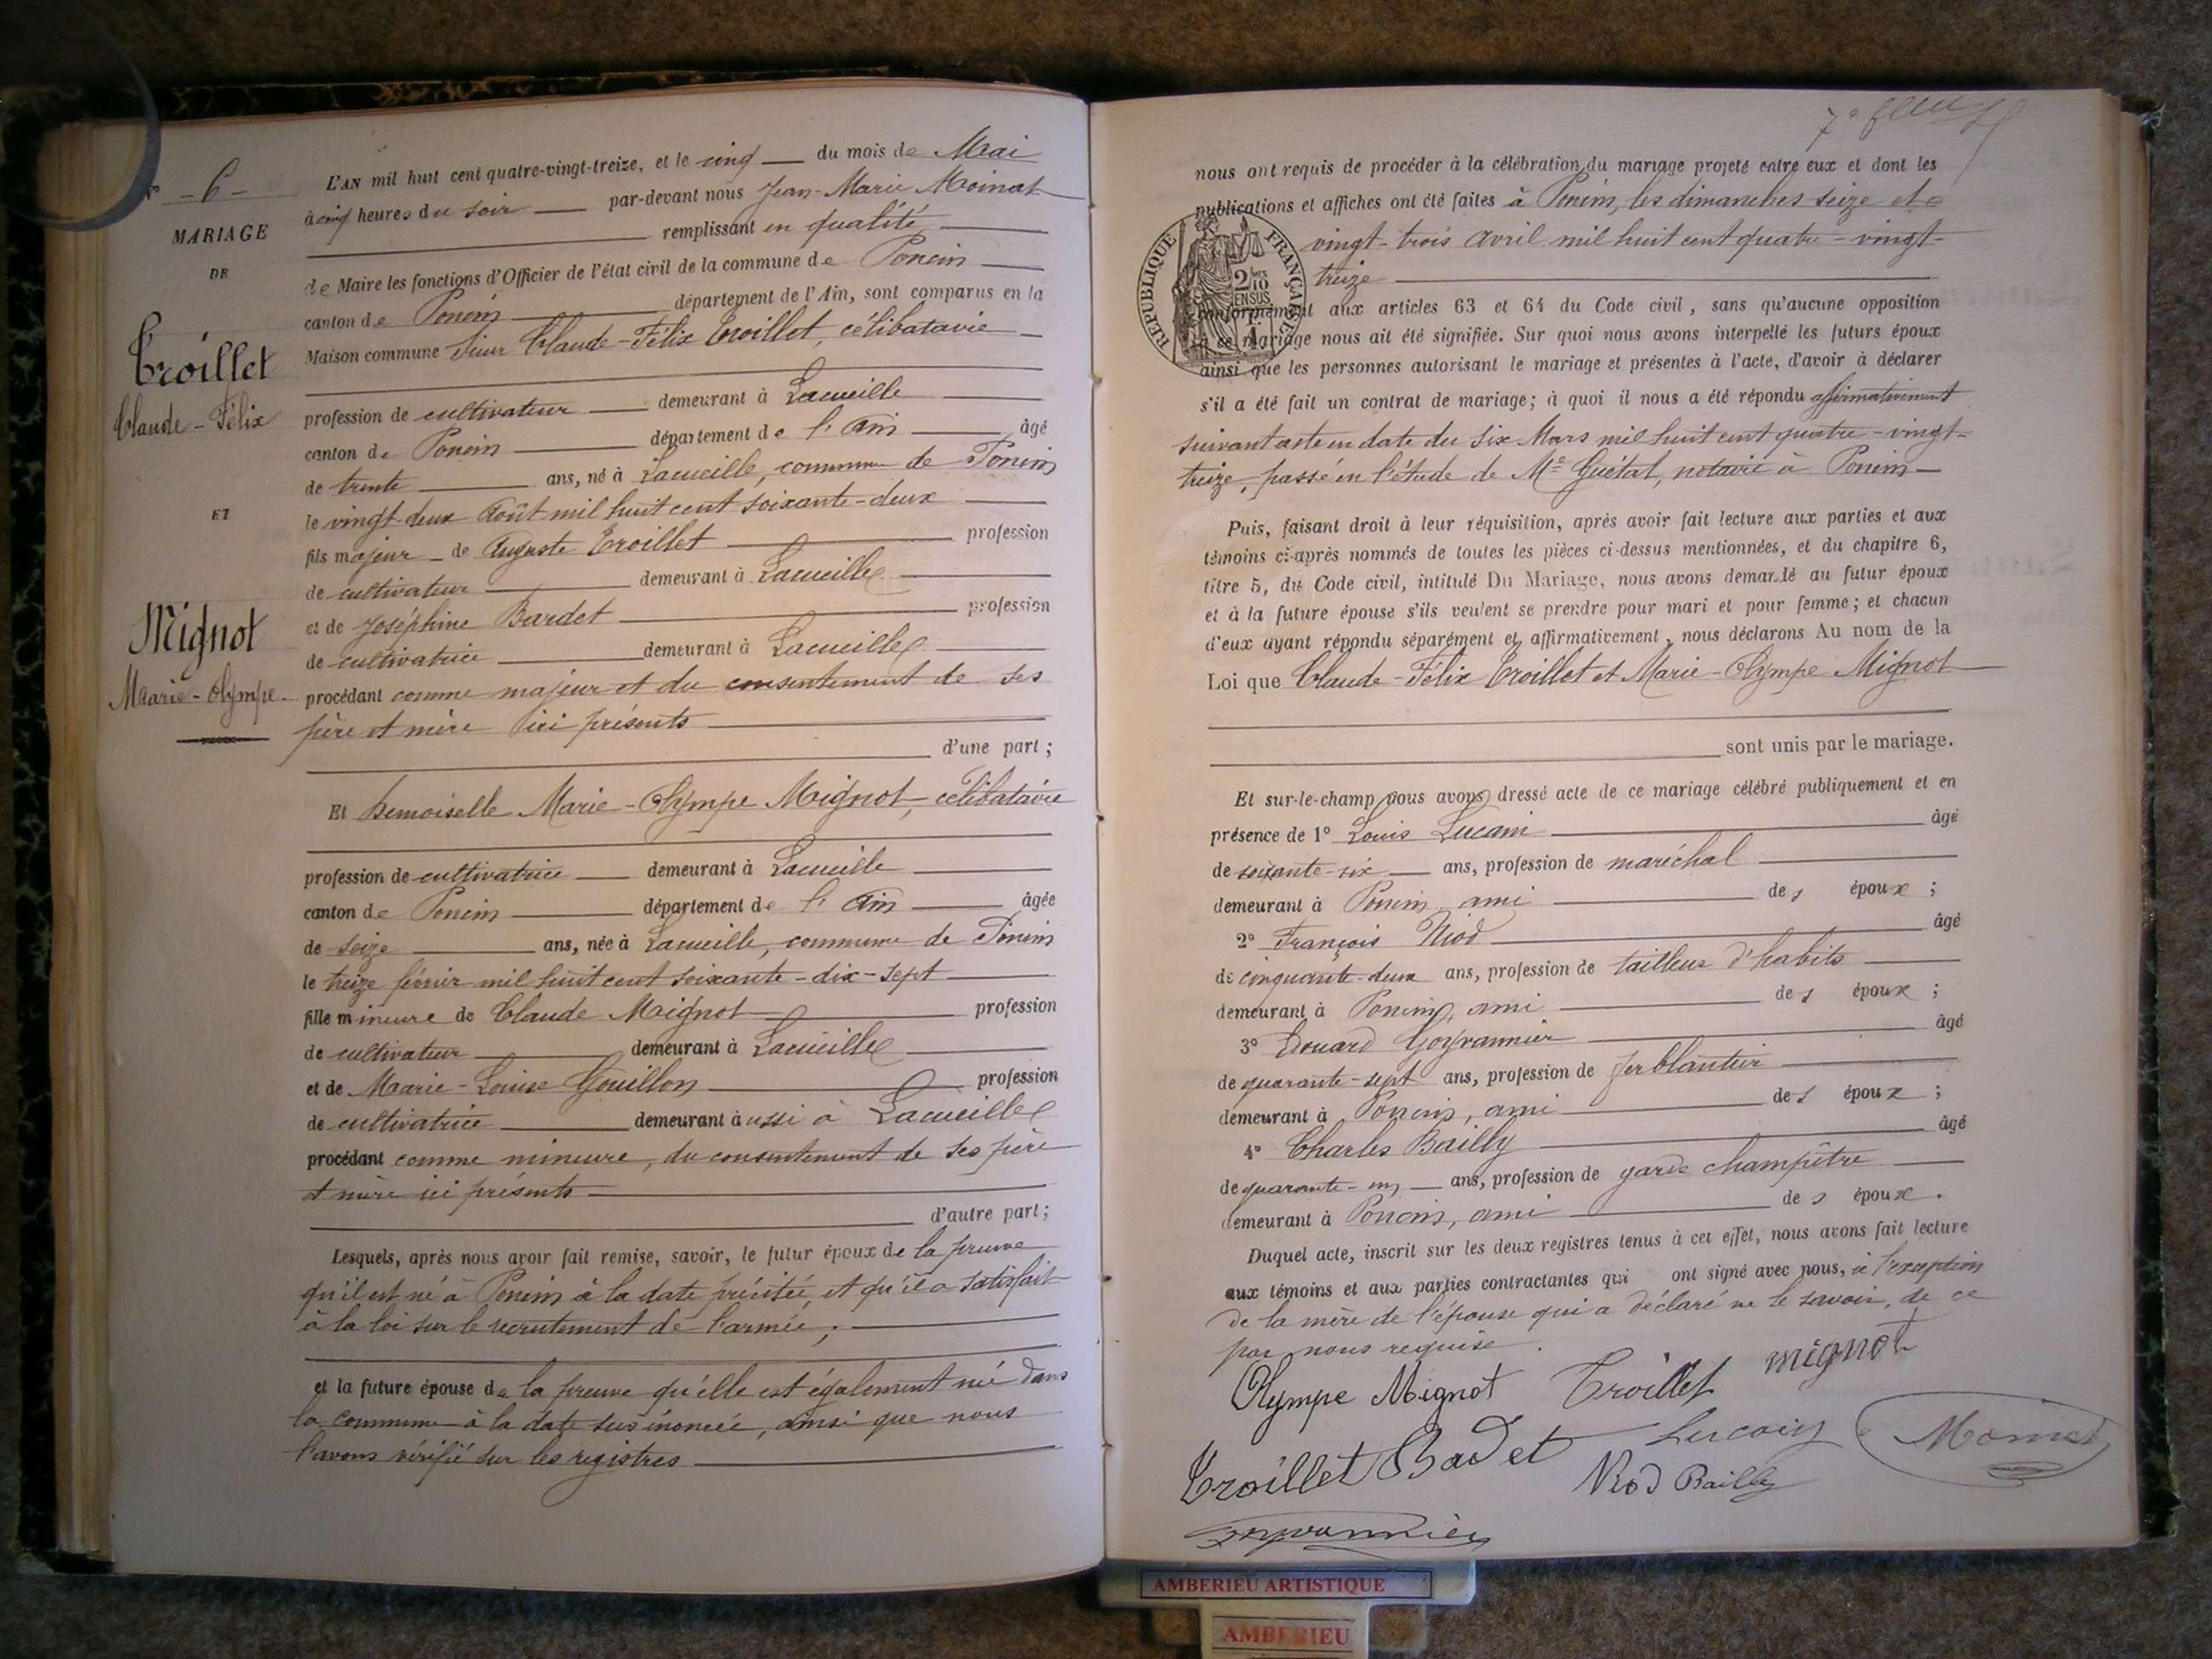 - 6 -
MARIAGE
DE
Troillet
Claude-Félix
ET
Mignot
Marie-Olympe
L'AN mil huit cent quatre-vingt-treize, et le cinq du mois de Mai
à cinq heures du soir par-devant nous Jean-Marie Moinat
remplissant en qualité
de Maire les fonctions d'Officier de l'état civil de la commune de Poncin
canton de Poncin département de l'Ain, sont comparus en la
Maison commune Sieur Claude-Félix Troillet, célibataire
profession de cultivateur demeurant à Lacueille
canton de Poncin département de l'Ain âgé
de trente ans, né à Lacueille, commune de Poncin
le vingt-deux Août mil huit cent soixante-deux
fils majeur de Auguste Troillet profession
de cultivateur demeurant à Lacueille
et de Joséphine Bardet profession
de cultivatrice demeurant à Lacueille
procédant comme majeur et du consentement de ses
père et mère ici présents
d'une part ;
Et Demoiselle Marie-Olympe Mignot, célibataire
profession de cultivatrice demeurant à Lacueille
canton de Poncin département de l'Ain âgée
de seize ans, née à Lacueille, commune de Poncin
le treize février mil huit cent soixante-dix-sept
fille mineure de Claude Mignot profession
de cultivateur demeurant à Lacueille
et de Marie-Louise Gouillon profession
de cultivatrice demeurant aussi à Lacueille
procédant comme mineure, du consentement de ses père
et mère ici présents
d'autre part ;
Lesquels, après nous avoir fait remise, savoir, le futur époux de la preuve
qu'il est né à Poncin à la date précitée, et qu'il a satisfait
à la loi sur le recrutement de l'armée ;
et la future épouse de la preuve qu'elle est également née dans
la commune à la date sus énoncée, ainsi que nous
l'avons vérifié sur les registres
7e
nous ont requis de procéder à la célébration du mariage projeté entre eux et dont les
publications et affiches ont été faites à Poncin, les dimanches seize et
vingt-trois Avril mil huit cent quatre-vingt-
treize
RÉPUBLIQUE FRANÇAISE
2/10 EN SUS
conformément aux articles 63 et 64 du Code civil, sans qu'aucune opposition
à ce mariage nous ait été signifiée. Sur quoi nous avons interpellé les futurs époux
ainsi que les personnes autorisant le mariage et présentes à l'acte, d'avoir à déclarer
s'il a été fait un contrat de mariage ; à quoi il nous a été répondu affirmativement
suivant acte en date du six Mars mil huit cent quatre-vingt-
treize, passé en l'étude de Me Guétat, notaire à Poncin
Puis, faisant droit à leur réquisition, après avoir fait lecture aux parties et aux
témoins ci-après nommés de toutes les pièces ci-dessus mentionnées, et du chapitre 6,
titre 5, du Code civil, intitulé Du Mariage, nous avons demandé au futur époux
et à la future épouse s'ils veulent se prendre pour mari et pour femme ; et chacun
d'eux ayant répondu séparément et affirmativement, nous déclarons Au nom de la
Loi que Claude-Félix Troillet et Marie-Olympe Mignot
sont unis par le mariage.
Et sur-le-champ nous avons dressé acte de ce mariage célébré publiquement et en
présence de 1° Louis Lucain âgé
de soixante-six ans, profession de maréchal
demeurant à Poncin, ami des époux ;
2° François Niod âgé
de cinquante-deux ans, profession de tailleur d'habits
demeurant à Poncin, ami des époux ;
3° Edouard Goyvannier âgé
de quarante-sept ans, profession de ferblantier
demeurant à Poncin, ami des époux ;
4° Charles Bailly âgé
de quarante-un ans, profession de garde champêtre
demeurant à Poncin, ami des époux.
Duquel acte, inscrit sur les deux registres tenus à cet effet, nous avons fait lecture
aux témoins et aux parties contractantes qui ont signé avec nous, à l'exception
de la mère de l'épouse qui a déclaré ne le savoir, de ce
par nous requise.
Olympe Mignot Troillet mignot
Troillet Badet Lucain Moinat
Niod Bailly
goyvannier
AMBERIEU ARTISTIQUE
AMBERIEU